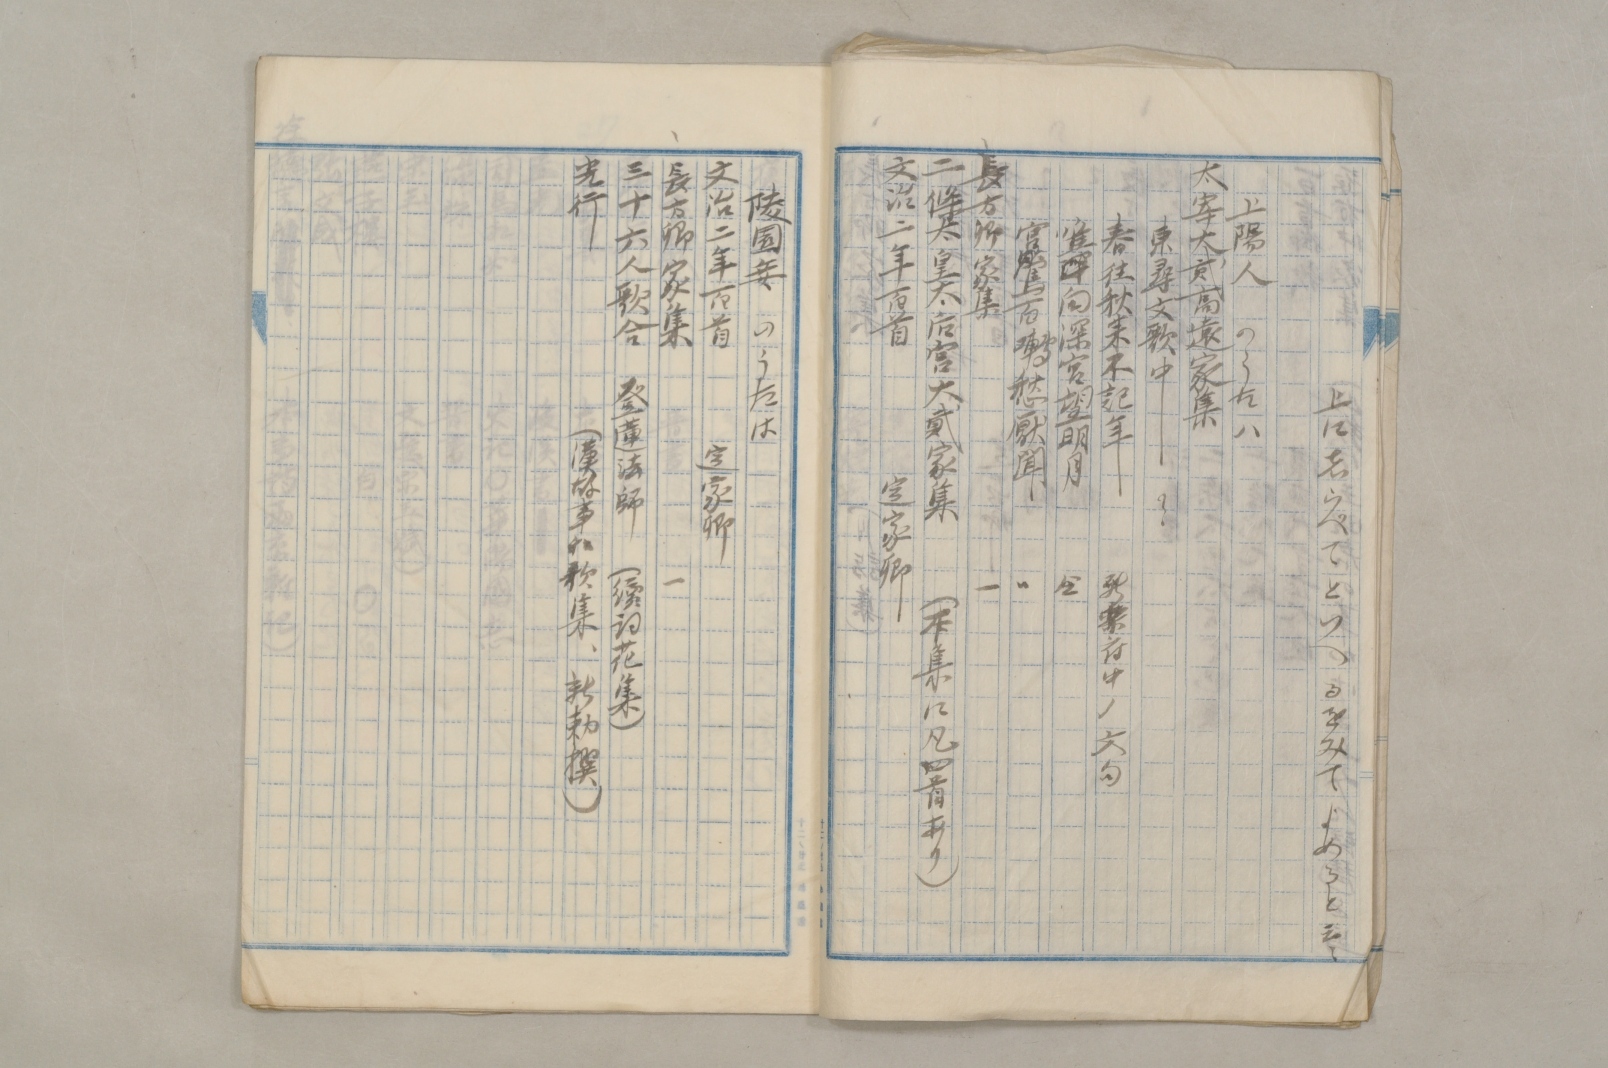 上にあらべてといへるをみてよめると云々
上陽人 のうたハ
太宰大貳高遠家集
東尋文歌中 〻
春往秋来不記年 新楽府中ノ文句
唯向深宮望明月 仝
宮鶯百囀愁厭聞 〃
長方卿家集 一
二條太皇太后宮大貳家集 (本集に凡四首あり)
文治二年百首 定家卿
陵園妾 のうたは
文治二年百首 定家卿
長方卿家集 一
三十六人歌合 登蓮法師 (續詞花集)
光行 (漢故事和歌集、新勅撰)